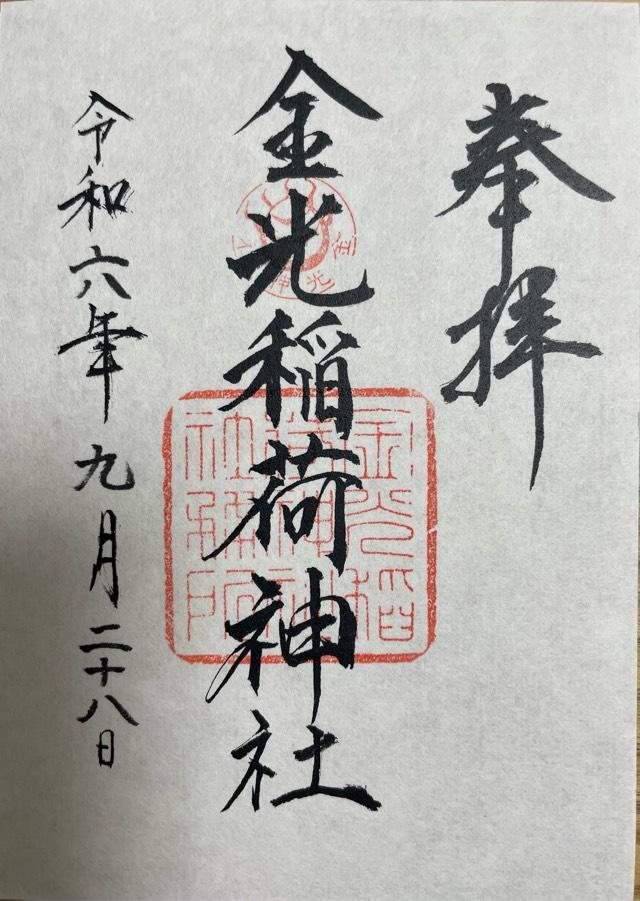 奉拝
金光稲荷神社
令和六年九月二十八日